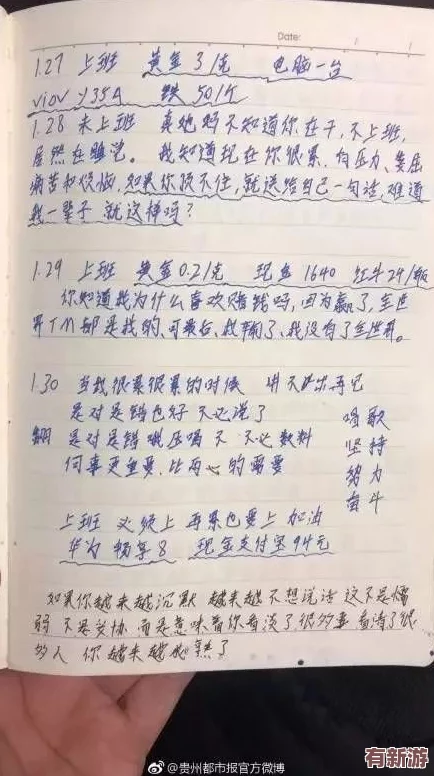 Date:
1.27 上班 黄金3/克 电脑一台
viov y35A 铁50/斤
1.28 未上班 真他妈不知道你在干,不上班,
居然在睡觉。我知道现在你很累,有压力、委屈
病苦和烦恼,如果你顶不住,就送给自己一句话,难道
我一辈子就这样吗?
1.29 上班 黄金0.2/克 现金1640 红牛24/瓶
你知道我为什么喜欢赌钱吗,因为赢了,全世
界TM都是我的、可最后、我输了、我没有了全世界。
1.30 当我很累很累的时候
是对是错也好 不必说了
是对是错 不必
何事更重要、比两心的需要
唱歌
坚持
努力
奋斗
上班 必须上 再累也要上 加油
华为 畅享8 现金支付宝94元
如果你越来越沉默 越来越不想说话 这不是懦
弱 不是妥协 而是意味着你看淡了很多事 看清了很
多人 你越来越成熟了
@贵州都市报官方微博
有新游